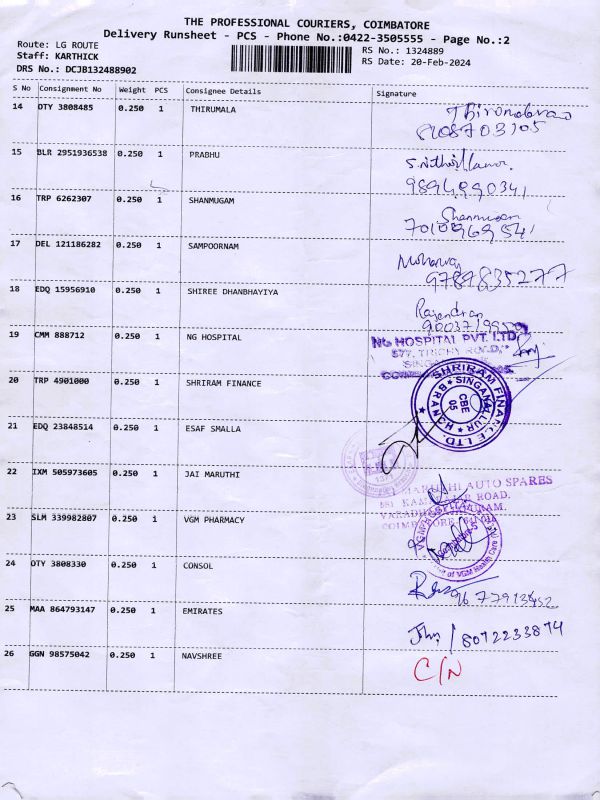 THE PROFESSIONAL COURIERS, COIMBATORE
Delivery Runsheet - PCS - Phone No.:0422-3505555 - Page No.:2
Route: LG ROUTE
Staff: KARTHICK
DRS No.: DCJB132488902
RS No.: 1324889
RS Date: 20-Feb-2024
S No Consignment No Weight PCS Consignee Details Signature
14 OTY 3808485 0.250 1 THIRUMALA
15 BLR 2951936538 0.250 1 PRABHU
16 TRP 6262307 0.250 1 SHANMUGAM Shanmugam
17 DEL 121186282 0.250 1 SAMPOORNAM
9787835277
18 EDQ 15956910 0.250 1 SHIREE DHANBHAYIYA Rajendran
19 CMM 888712 0.250 1 NG HOSPITAL NG HOSPITAL PVT. LTD
577, TRICHY ROAD,
20 TRP 4901000 0.250 1 SHRIRAM FINANCE SHRIRAM FINANCE LTD.
SINGANALLUR BRANCH
CBE
05
21 EDQ 23848514 0.250 1 ESAF SMALLA
22 IXM 505973605 0.250 1 JAI MARUTHI MARUTHI AUTO SPARES
ROAD,
23 SLM 339982807 0.250 1 VGM PHARMACY
Unit of VGM Health Care
24 OTY 3808330 0.250 1 CONSOL
25 MAA 864793147 0.250 1 EMIRATES 8072233874
26 GGN 98575042 0.250 1 NAVSHREE C/N